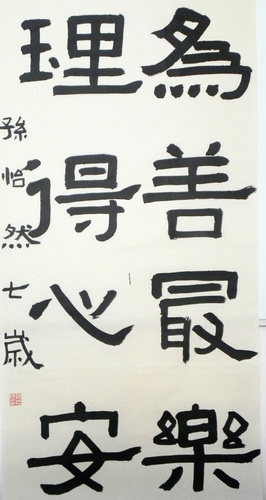 為善最樂
理得心安
孫怡然七歲